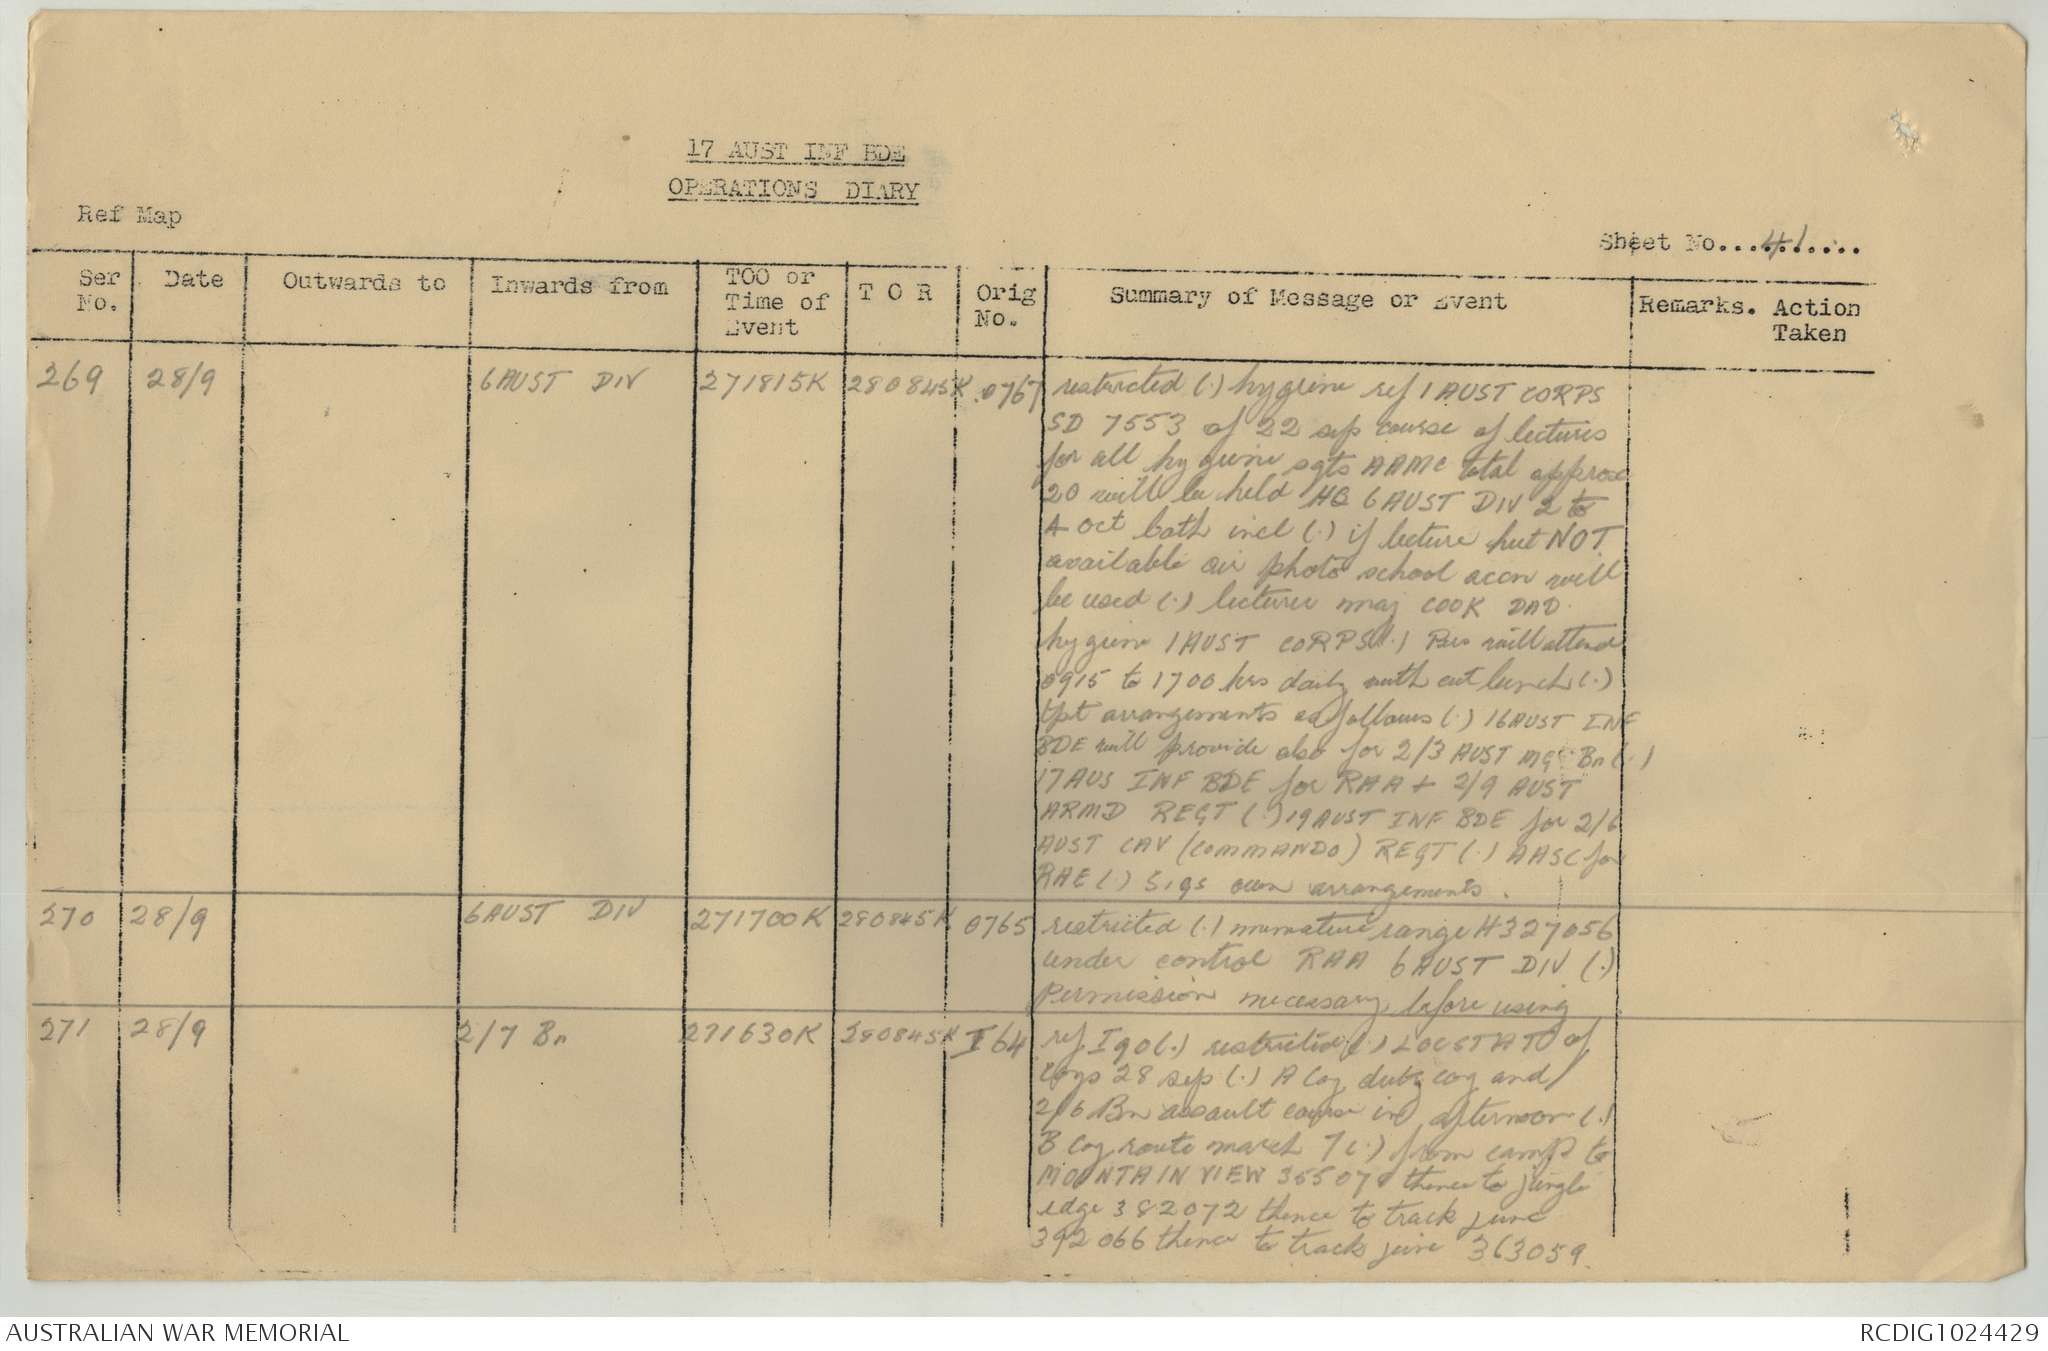 17 AUST INF BDE
OPERATIONS DIARY
Ref Map
Sheet No....41.....
Ser No. Date Outwards to Inwards from TOO or Time of Event T O R Orig No. Summary of Message or Event Remarks. Action Taken
269 28/9 6 AUST DIV 271815K 280845K 0767 restricted (.) hygiene ref 1 AUST CORPS
SD 7553 of 22 sep course of lectures
for all hygiene sgts AAMC total approx
20 will be held HQ 6 AUST DIV 2 to
4 Oct both incl (.) if lecture hut NOT
available air photo school accn will
be used (.) lecturer maj COOK DAD.
hygiene 1 AUST CORPS (.) Pers will attend
0915 to 1700 hrs daily with cut lunch (.)
tpt arrangements as follows (.) 16 AUST INF
BDE will provide also for 2/3 AUST MG Bn (.)
17 AUS INF BDE for RAA + 2/9 AUST
ARMD REGT (.) 19 AUST INF BDE for 2/6
AUST CAV (COMMANDO) REGT (.) AASC for
RAE (.) Sigs own arrangements.
270 28/9 6 AUST DIV 271700K 280845K 0765 restricted (.) miniature range H327056
under control RAA 6 AUST DIV (.)
Permission necessary before using
271 28/9 2/7 Bn 271630K 280845K I 64 ref I 90 (.) restricted (.) LOCSTAT of
coys 28 sep (.) A Coy duty coy and
2/6 Bn assault course in afternoon (.)
B Coy route march 7 (.) from camp to
MOUNTAIN VIEW thence to jungle
edge 382072 thence to track junc
392066 thence to track junc 363059.
AUSTRALIAN WAR MEMORIAL
RCDIG1024429